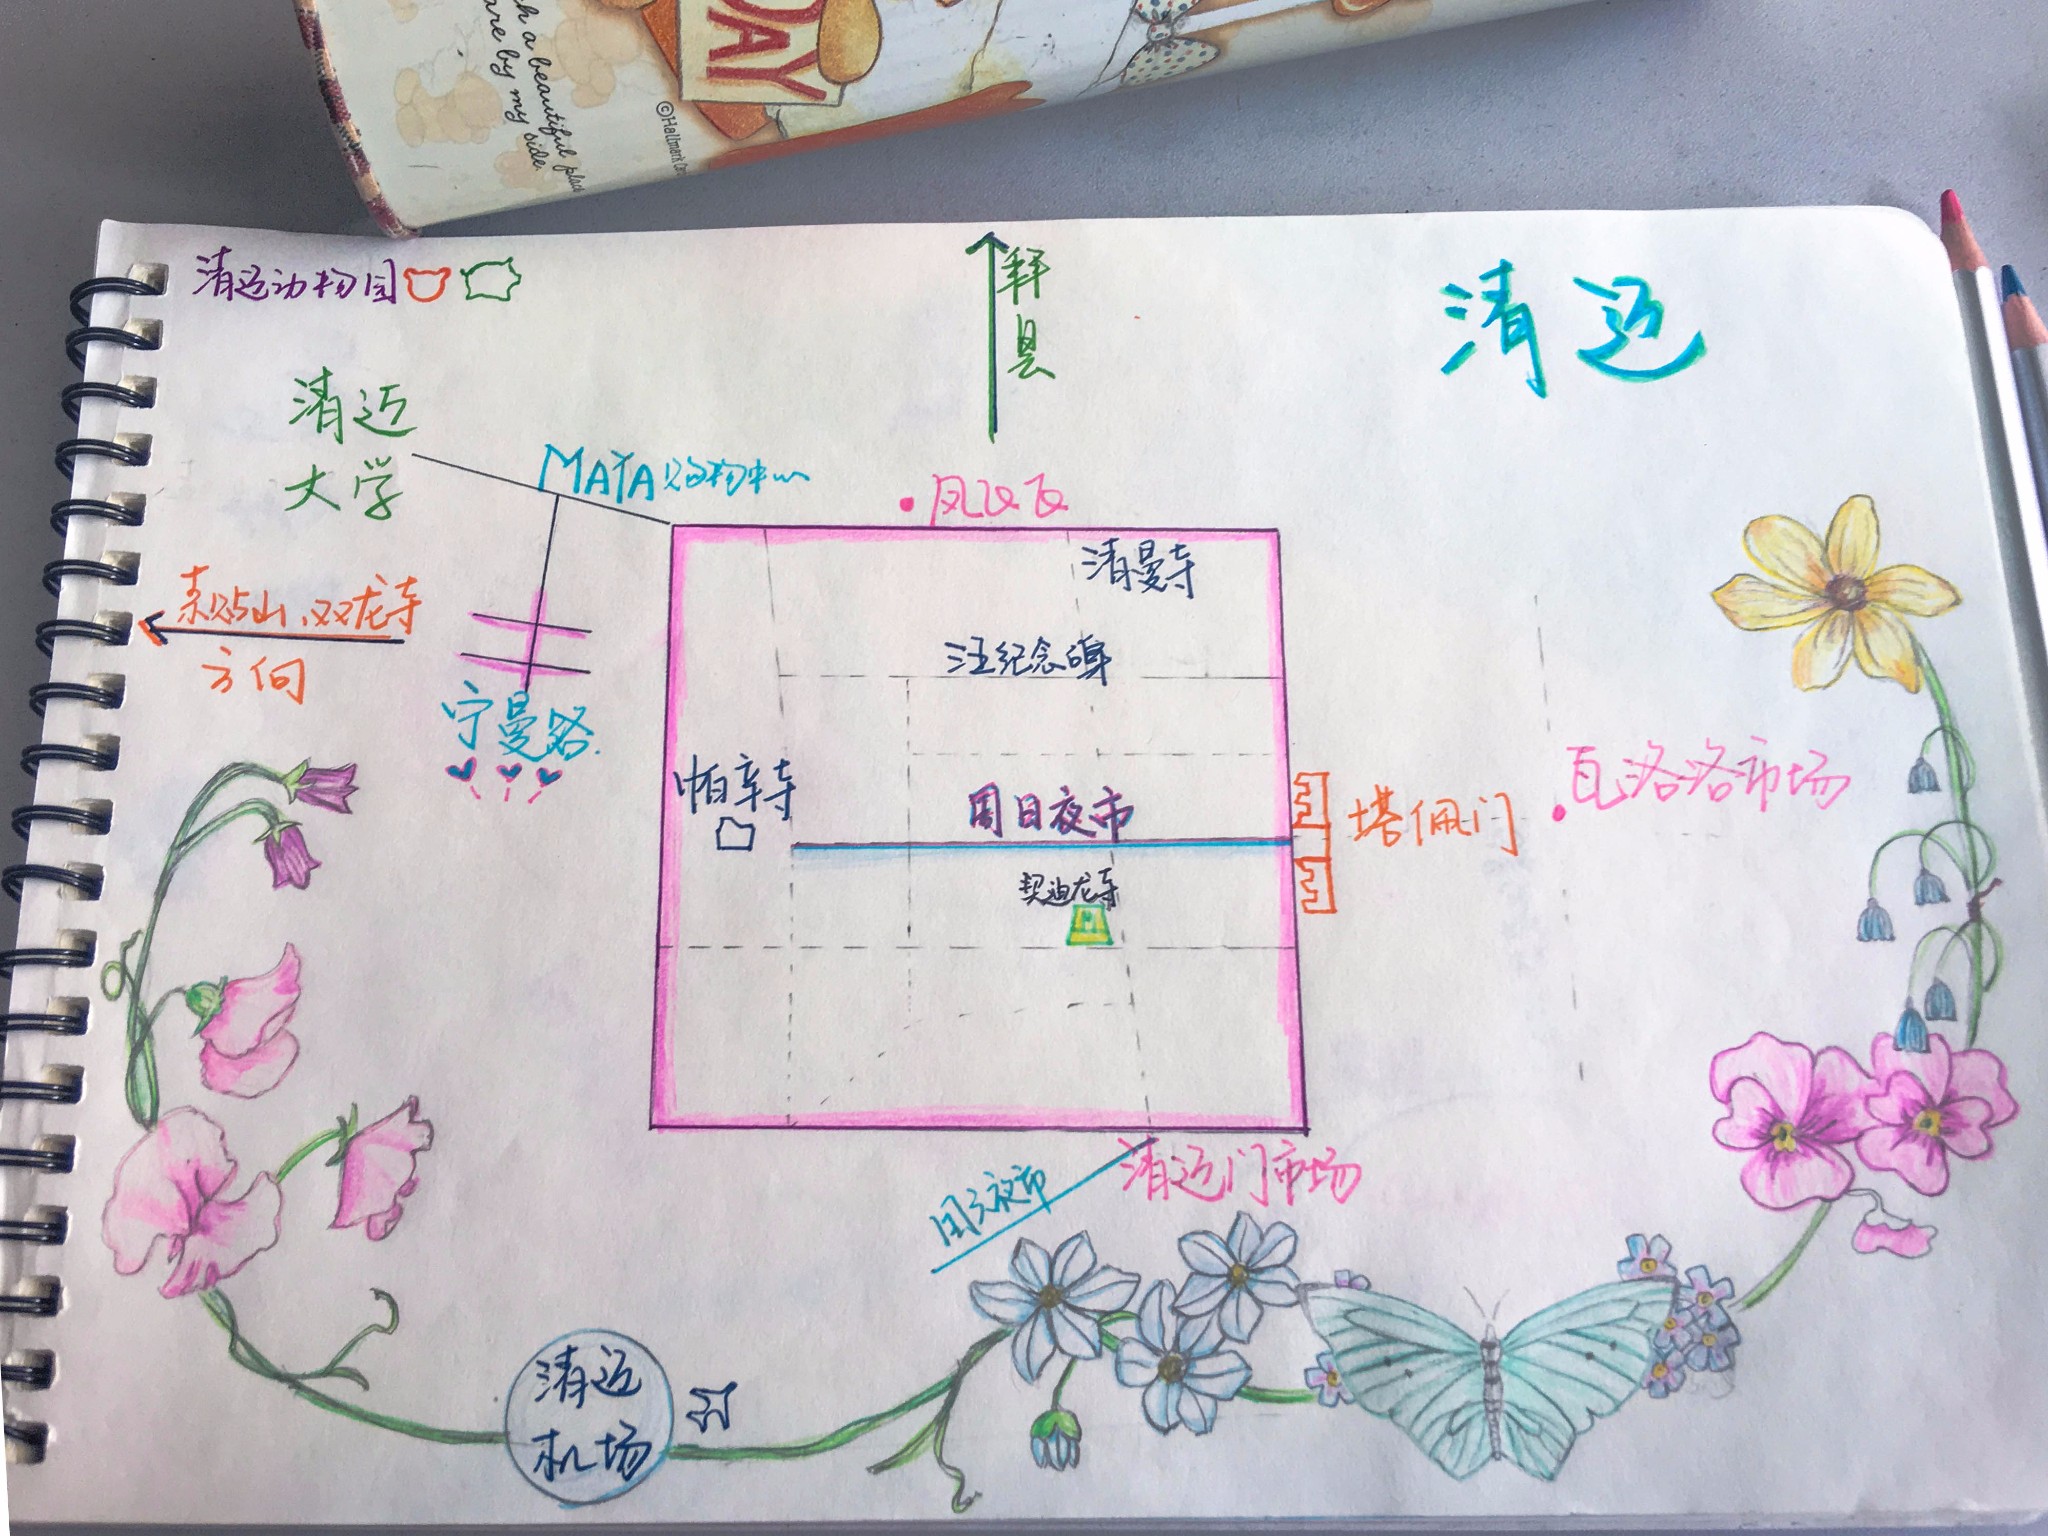 DAY
h a beautiful place
are by my side.
©Hallmark
清迈动物园
拜县
清迈
清迈
大学
MAYA购物中心
凤飞飞
清曼寺
素贴山、双龙寺
方向
汪纪念碑
宁曼路
瓦洛洛市场
帕辛寺
周日夜市
塔佩门
契迪龙寺
清迈门市场
周六夜市
清迈
机场